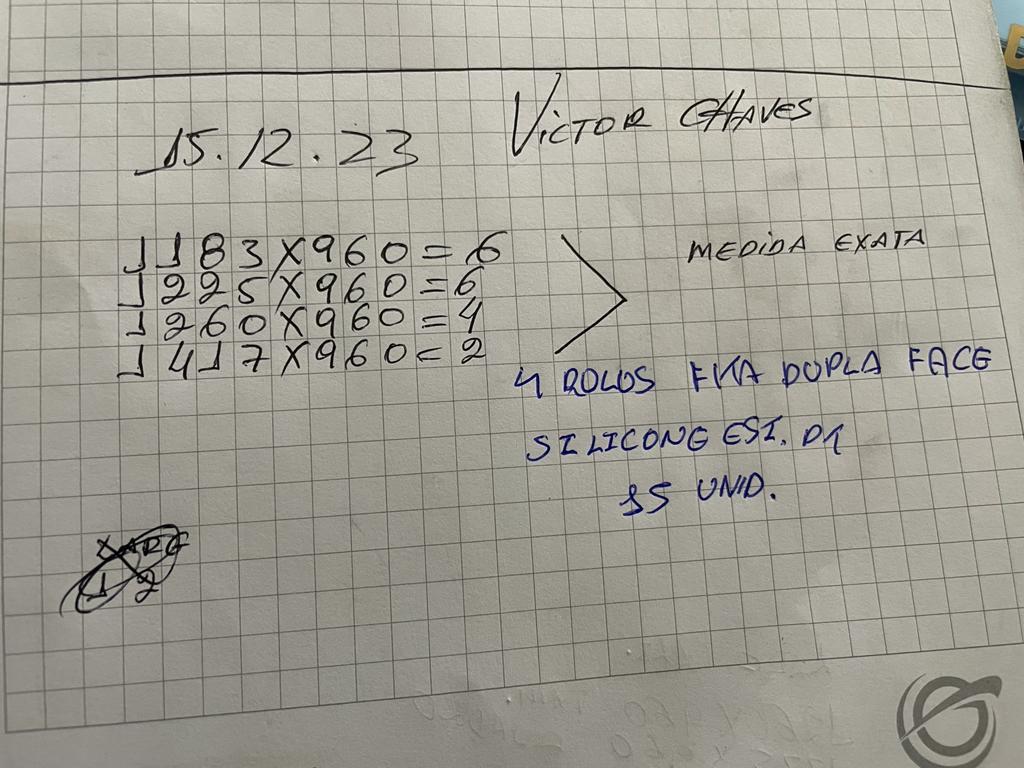 15.12.23 VICTOR CHAVES
1183X960=6
1225X960=6
1260X960=4
1417X960=2
MEDIDA EXATA
4 ROLOS FITA DUPLA FACE
SILICONE EST. D1
15 UNID.